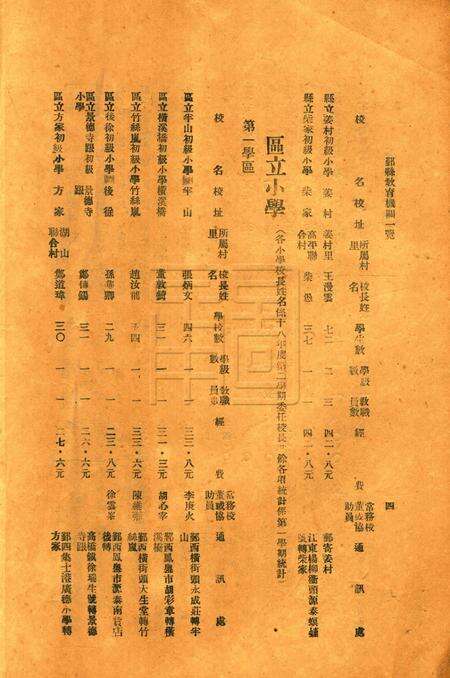 鄞縣教育機關一覽
四
校名 校址 所屬村里 校長姓名 學生數 學級數 教職員數 經費 常務校董或協助員 通訊處
縣立姜村初級小學 姜村 姜村里 王漫雲 七二 二 三 四二·八元 鄞寄姜村
縣立柴家初級小學 柴家 高平聯合村 柴愚 三七 一 一 四·八元 江東楊柳街頭源泰
區立小學(各小學校長姓名係十八年度第二學期委任校長餘各項統計係第一學期統計)
第一學區
校名 校址 所屬村里 校長姓名 學生數 學級數 教職員數 經費 常務校董或協助員 通訊處
區立半山初級小學 半山 張炳文 四六 一 一 三三·八元 李庚火 鄞西橫街頭永成莊轉半山
區立橫溪橋初級小學 橫溪橋 董敦 三一 一 一 三一·三元 胡必 鄞西鳳奧市胡彩章轉橫溪橋
區立竹絲嵐初級小學 竹絲嵐 趙汝 四 一 一 三三·六元 陳 鄞西橫街頭大生堂轉竹絲嵐
區立後徐初級小學 後徐 孫 二九 一 一 三二·八元 徐雲 鄞西鳳奧市源泰南貨店後轉
區立景德寺跟初級小學 景德寺跟 鄭 三一 一 一 二六·六元 高橋鎮徐瑞生號轉景德寺跟
區立方家初級小學 方家 湖山聯合村 鄭道璋 三〇 一 一 二七·六元 鄞西集士港廣德小學轉方家